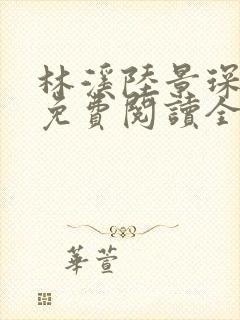 林溪陸景琛
免費閱讀全
華萱